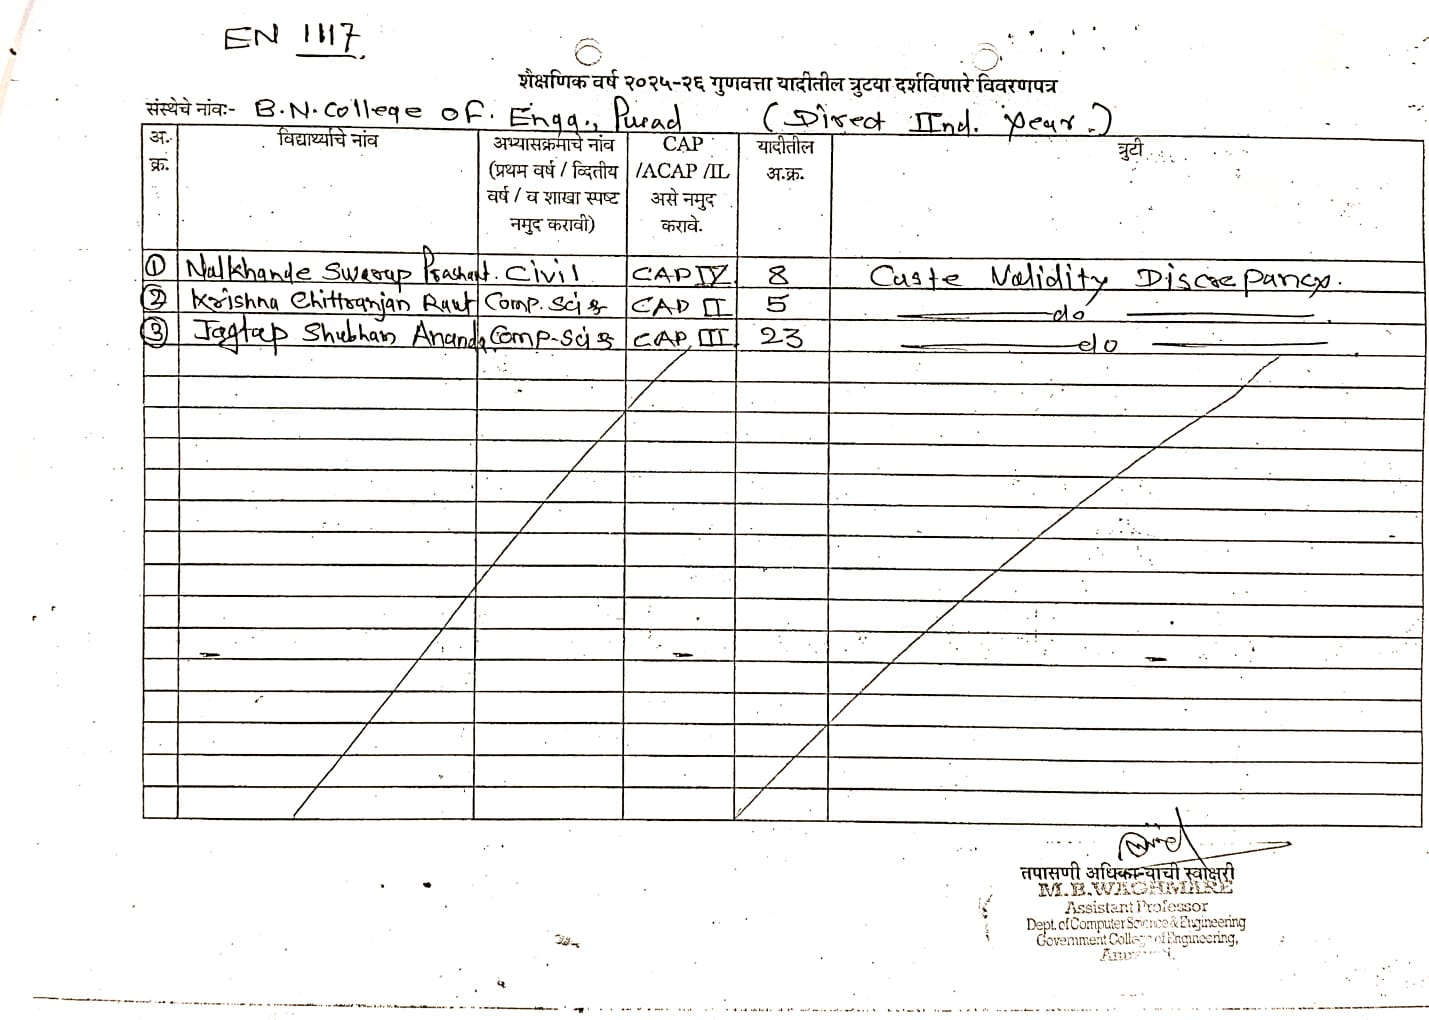 EN 1117.
शैक्षणिक वर्ष २०२५-२६ गुणवत्ता यादीतील त्रुटया दर्शविणारे विवरणपत्र
संस्थेचे नांवः- B.N. College of. Engg., Pusad (Direct IInd. Year.)
अ. क्र. विद्यार्थ्याचे नांव अभ्यासक्रमाचे नांव (प्रथम वर्ष / व्दितीय वर्ष / व शाखा स्पष्ट नमुद करावी) CAP /ACAP /IL असे नमुद करावे. यादीतील अ.क्र. त्रुटी
① Nalkhande Swarup Prashant. Civil CAP IV 8 Caste Validity Discrepancy.
② Krishna Chittranjan Raut Comp. Sci & CAP II 5 do
③ Jagtap Shubham Ananda Comp-Sci & CAP III 23 do
तपासणी अधिकाऱ्याची स्वाक्षरी
M.B.WAGHMARE
Assistant Professor
Dept. of Computer Science & Engineering
Government College of Engineering,